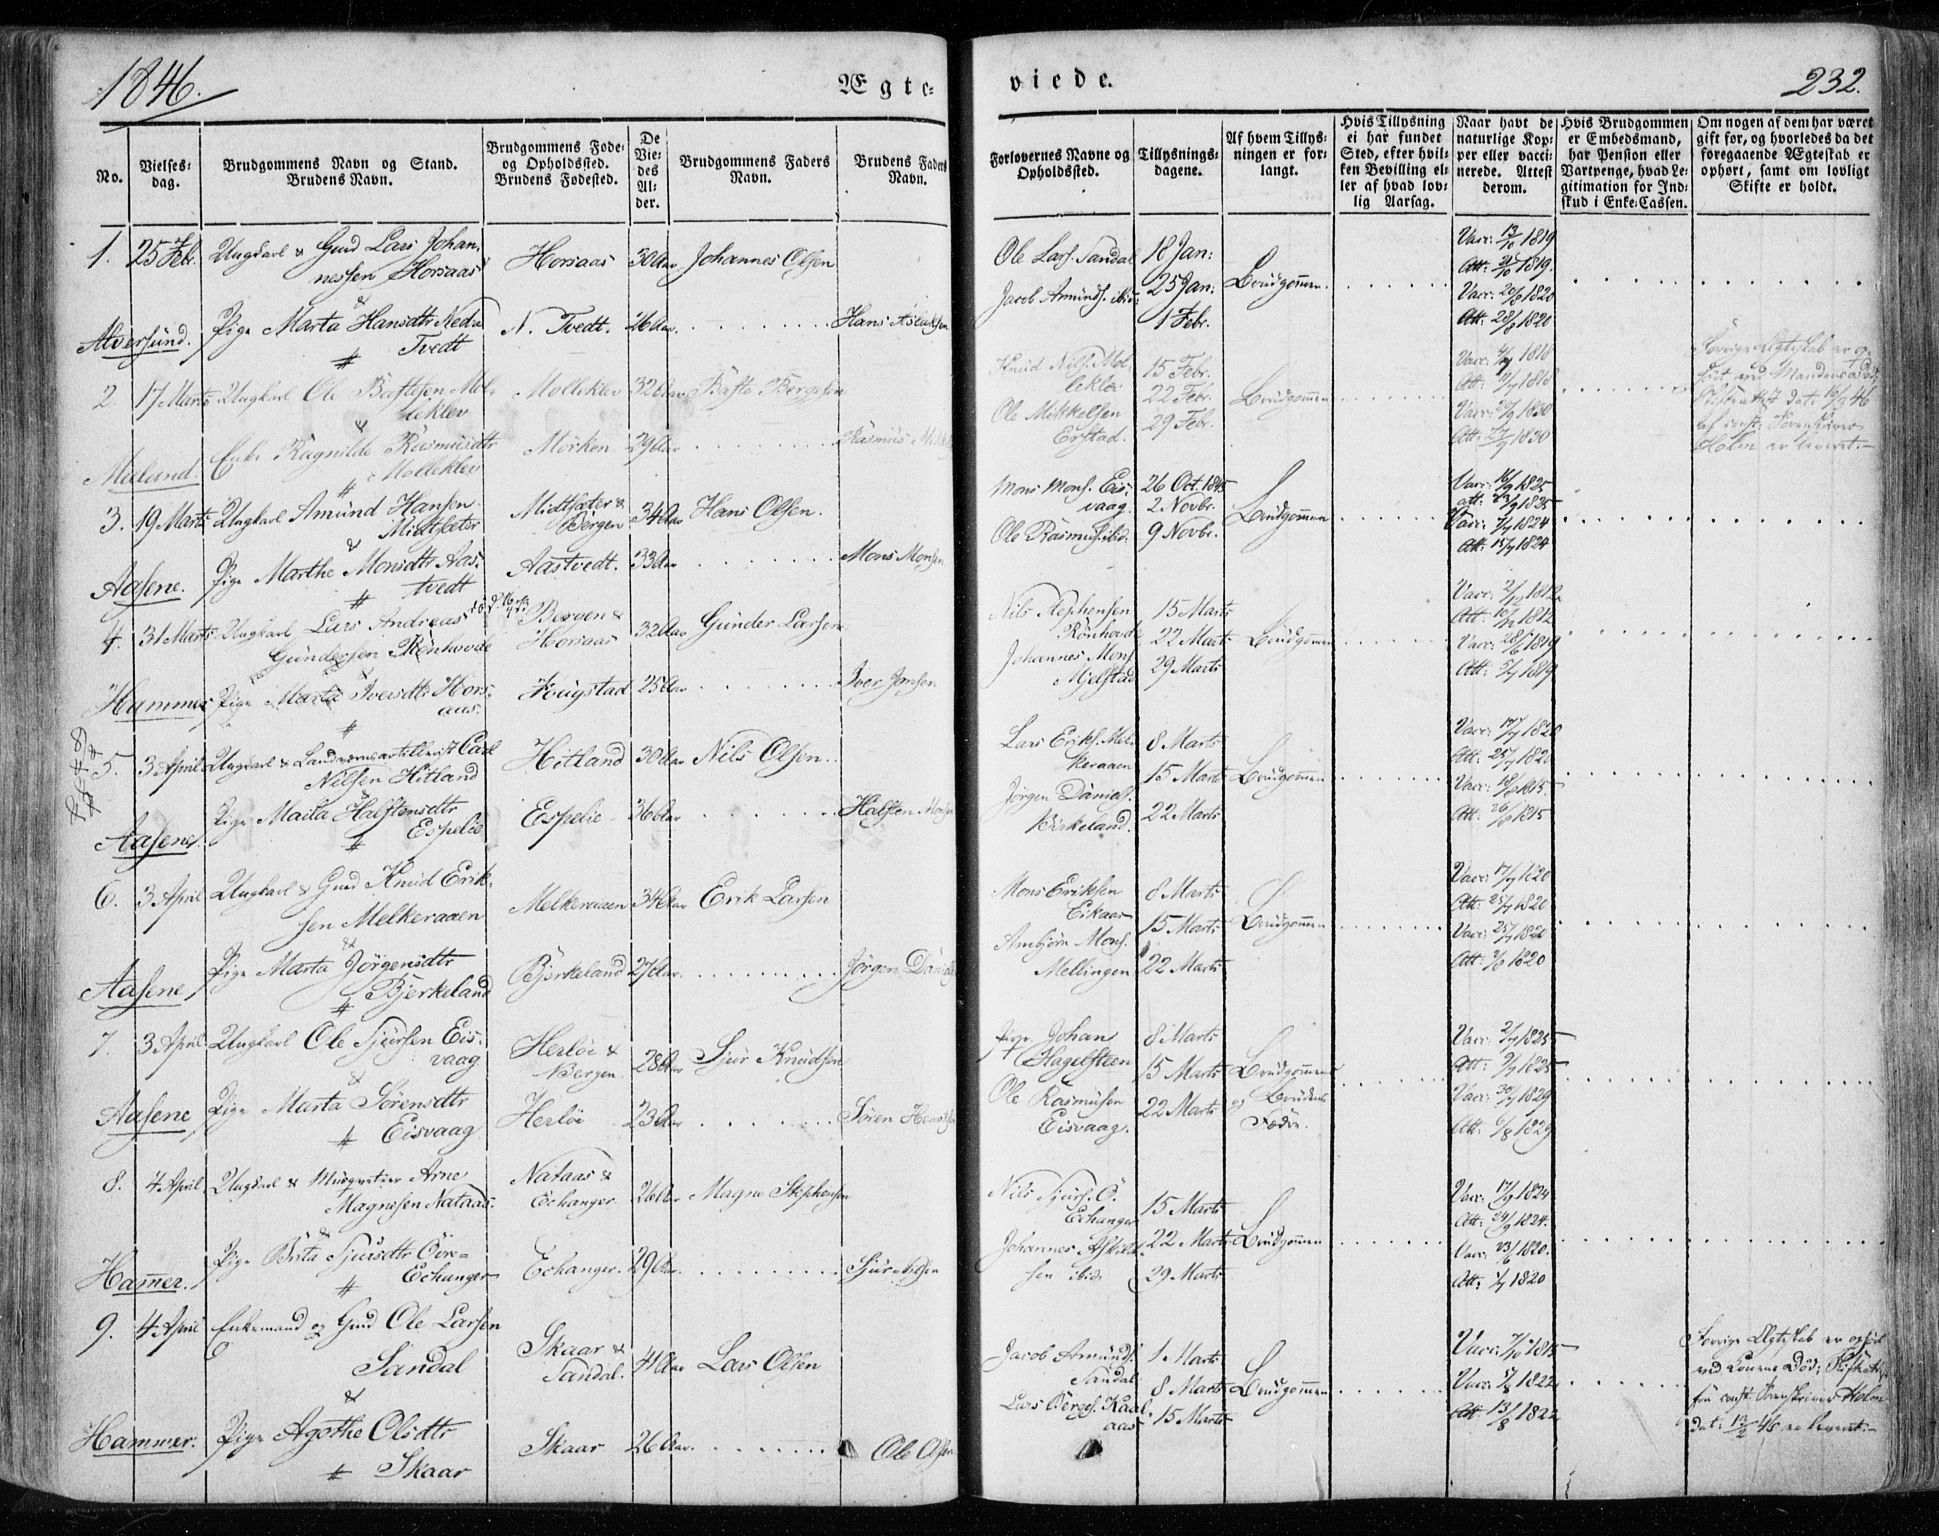 1846.
Ægte-
viede.
232.
No.
Vielses-
dag.
Brudgommens Navn og Stand.
Brudens Navn.
Brudgommens Føde-
og Opholdssted.
Brudens Fødested.
De
Vie-
des
Al-
der.
Brudgommens Faders
Navn.
Brudens Faders
Navn.
Forlovernes Navne og
Opholdssted.
Tillysnings-
dagene.
Af hvem Tillys-
ningen er for-
langt.
Hvis Tillysning
ei har fundet
Sted, efter hvil-
ken Bevilling el-
ler af hvad lov-
lig Aarsag.
Naar havt de
naturlige Kop-
per eller vacci-
nerede. Attest
derom.
Hvis Brudgommen
er Embedsmand,
har Pension eller
Vartpenge, hvad Le-
gitimation for Ind-
skud i Enke-Cassen.
Om nogen af dem har været
gift før, og hvorledes da det
foregaaende Ægteskab er
ophørt, samt om lovligt
Skifte er holdt.
1. 25 Febr. Ungkarl & Gmd Lars Johan-
nessen Horsaas
Horsaas 30 Aar Johannes Olsen
Ole Lars. Sandal 18 Jan:
Jacob Amunds. ibid: 25 Jan: Brudgommen
1 Febr.
Vacc: 13/10 1819
Att: 21/10 1819.
Vacc: 20/8 1820
Att: 28/8 1820
&
Alversund. Pige Marta Hansdtr Nedre
Tvedt
N. Tvedt. 26 Aar Hans Aslaksen
2. 17 Marts Ungkarl Ole Bastesen Mol-
leklev
Molleklev 32 Aar Baste Børgesen
Knud Nils. Mol-
leklev 15 Febr.
22 Febr. Brudgommen
Ole Mikkelsen
Erstad. 29 Febr.
Att: 27/9 1830
Forrige Ægteskab er op-
hørt ved Mandens Død;
Skifteattest dat: 16/2 46
af const: Sorenskriver
Holm er leveret.
&
Mæland. Enke Ragnilde Rasmusdtr
Molleklev
Mørken 29 Aar Rasmus
3. 19 Marts Ungkarl Amund Hansen
Midtsæter
Midtsæter &
Bergen 34 Aar Hans Olsen.
Mons Mons. Eis-
vaag 26 Oct. 1845
2 Novbr. Brudgommen
Ole Rasmus. ibid. 9 Novbr.
Vacc: 16/9 1825
Att: 23/9 1825
Vacc: 7/7 1824
Att: 15/7 1824
&
Aasene. Pige Marthe Monsdtr Aas-
tvedt
Aastvedt. 33 Aar Mons Monsen
4. 31 Marts Ungkarl Lars Andreas
Gundersen Rønhovde
Bergen &
Horsaas 32 Aar Gunder Larsen
Nils Stephensen
Rønhovde 15 Marts
22 Marts Brudgommen
Johannes Mons.
Mjelstad 29 Marts
Vacc: 2/12 1812
Att: 10/12 1812
Vacc: 28/6 1819
Att: 5/7 1819
&
Hammer Pige Marta Iversdtr Hors-
aas.
Fougstad 25 Aar Iver Jonsen
5. 3 April Ungkarl & Landværnsartillerist Carl
Nilsen Hitland
Hitland 30 Aar Nils Olsen
Lars Eriks. Mel-
keraaen 8 Marts
15 Marts Brudgommen
Jørgen Daniels.
Birkeland. 22 Marts
Vacc: 17/7 1820
Att: 25/7 1820
Vacc: 18/8 1815
Att: 26/8 1815
&
Aasene. Pige Marta Halstensdtr
Espelie
Espelie 36 Aar Halsten Monsen
6. 3 April Ungkarl & Gmd Knud Erik-
sen Melkeraaen
Melkeraaen 34 Aar Erik Larsen
Mons Eriksen
Eikaas 8 Marts
15 Marts Brudgommen
Ambjørn Mons.
Mellingen 22 Marts
Vacc: 17/7 1820
Att: 25/7 1820
Vacc: 25/7 1820
Att: 2/8 1820
&
Aasene Pige Marta Jørgensdtr
Bjerkeland
Bjerkeland 27 Aar Jørgen Daniels
7. 3 April Ungkarl Ole Sjursen Eis-
vaag
Herløe &
Bergen 28 Aar Sjur Knudsen
Johan
Hagelsteen 8 Marts
15 Marts Brudgommen
Ole Rasmusen
Eisvaag. 22 Marts og Brudens
Fader.
Vacc: 2/7 1825
Att: 9/7 1825
Vacc: 30/7 1829
Att: 6/8 1829
&
Aasene Pige Marta Sørensdtr
Eisvaag
Herløe 23 Aar Søren Henriksen
8. 4 April Ungkarl & Musqveteer Arne
Magnesen Nataas.
Nataas &
Echanger 26 Aar Magne Stephensen
Nils Sjurs. Ø.
Echanger 15 Marts
22 Marts Brudgommen
Johannes
sen ibid: 29 Marts
Vacc: 17/9 1824
Att: 24/9 1824.
Vacc: 23/6 1820.
Att: 1/7 1820
&
Hammer. Pige Brita Sjursdtr Øvre-
Echanger
Echanger. 29 Aar Sjur Nilsen
9. 4 April Enkemand og Gmd Ole Larsen
Sandal
Skaar &
Sandal. 41 Aar Lars Olsen
Jacob Amunds.
Sandal 1 Marts
8 Marts Brudgommen
Lars Børges. Kaal-
aas 15 Marts
Vacc: 7/10 1815
Vacc: 5/8 1822
Att: 13/8 1822
Forrige Ægteskab er ophørt
ved Konens Død; Skifteattest
fra const: Sorenskriver Holm
dat: 13/2 46 er leveret.
&
Hammer. Pige Agathe Olsdtr
Skaar
Skaar 26 Aar Ole Olsen